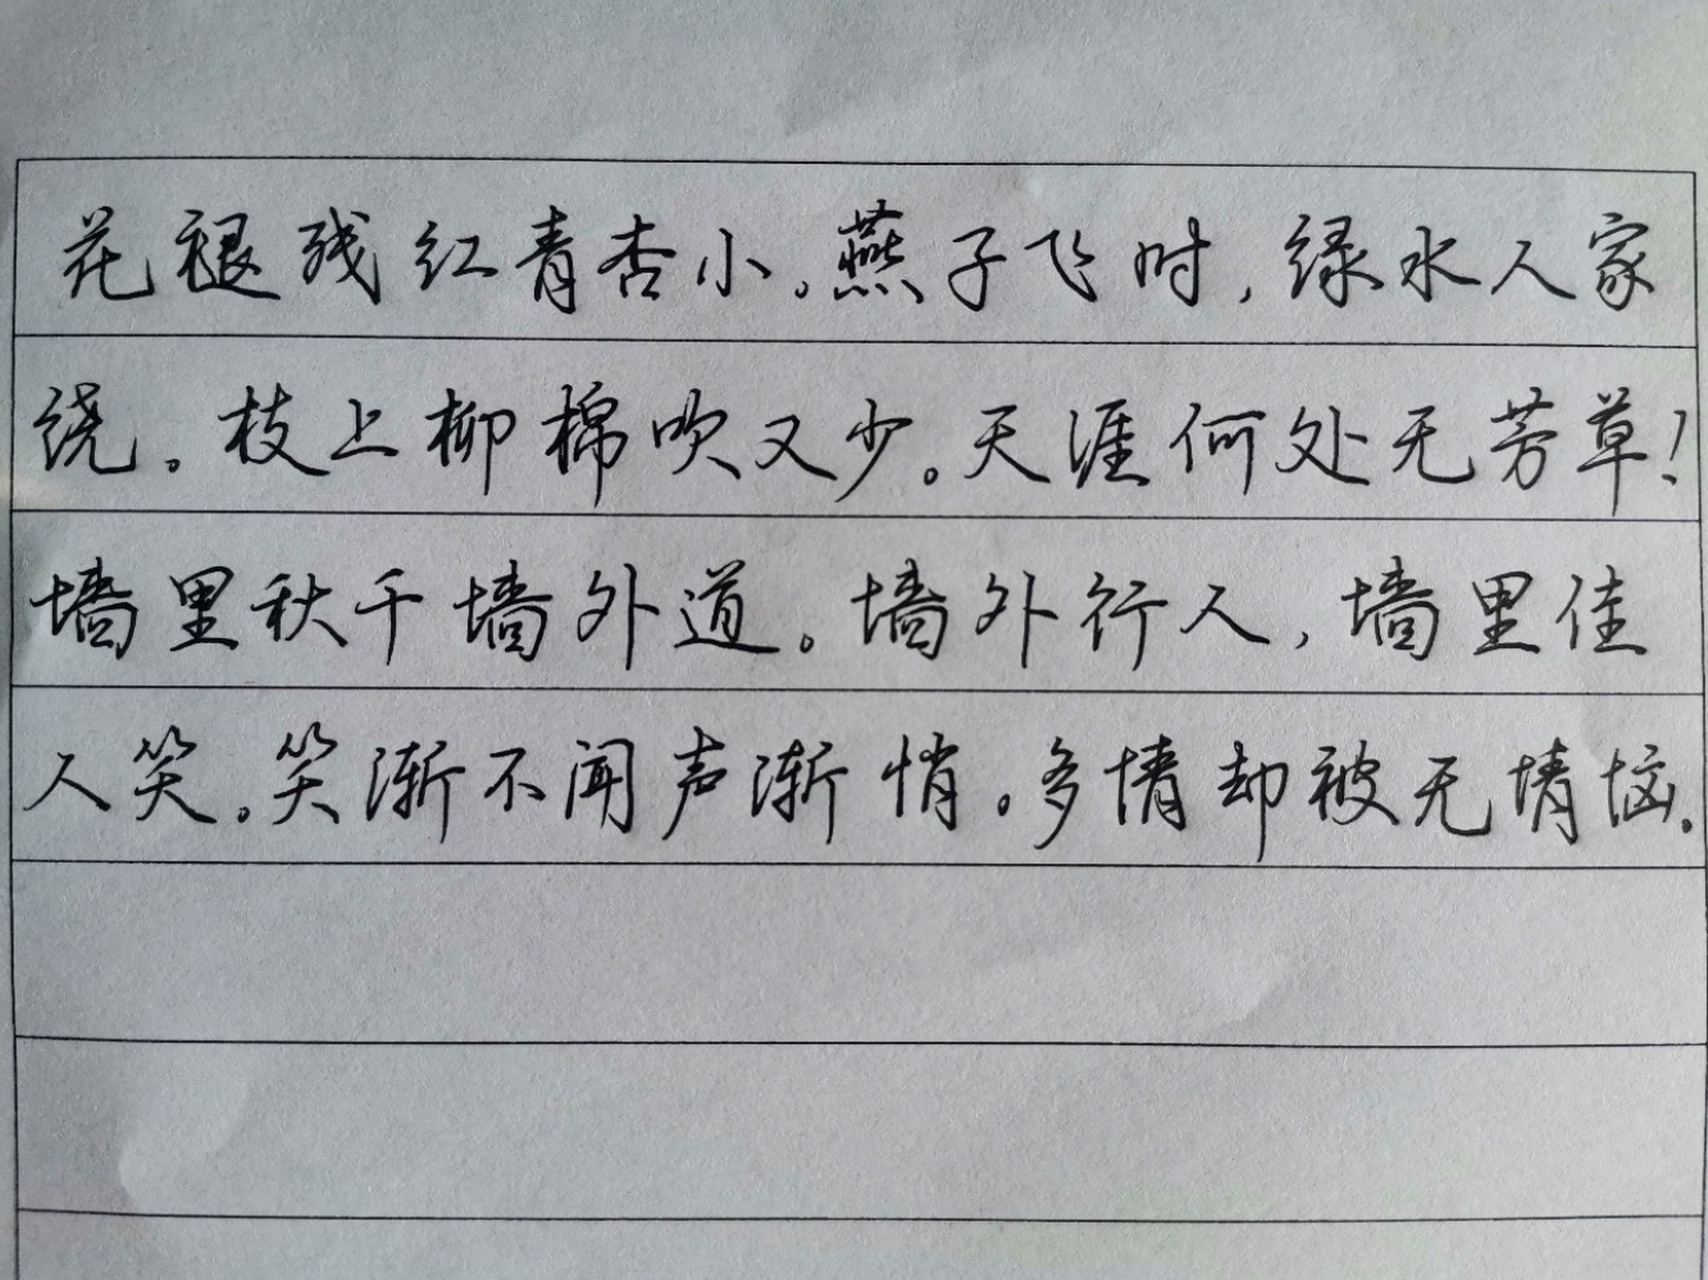 花褪残红青杏小。燕子飞时，绿水人家
绕。枝上柳棉吹又少。天涯何处无芳草！
墙里秋千墙外道。墙外行人，墙里佳
人笑。笑渐不闻声渐悄。多情却被无情恼。